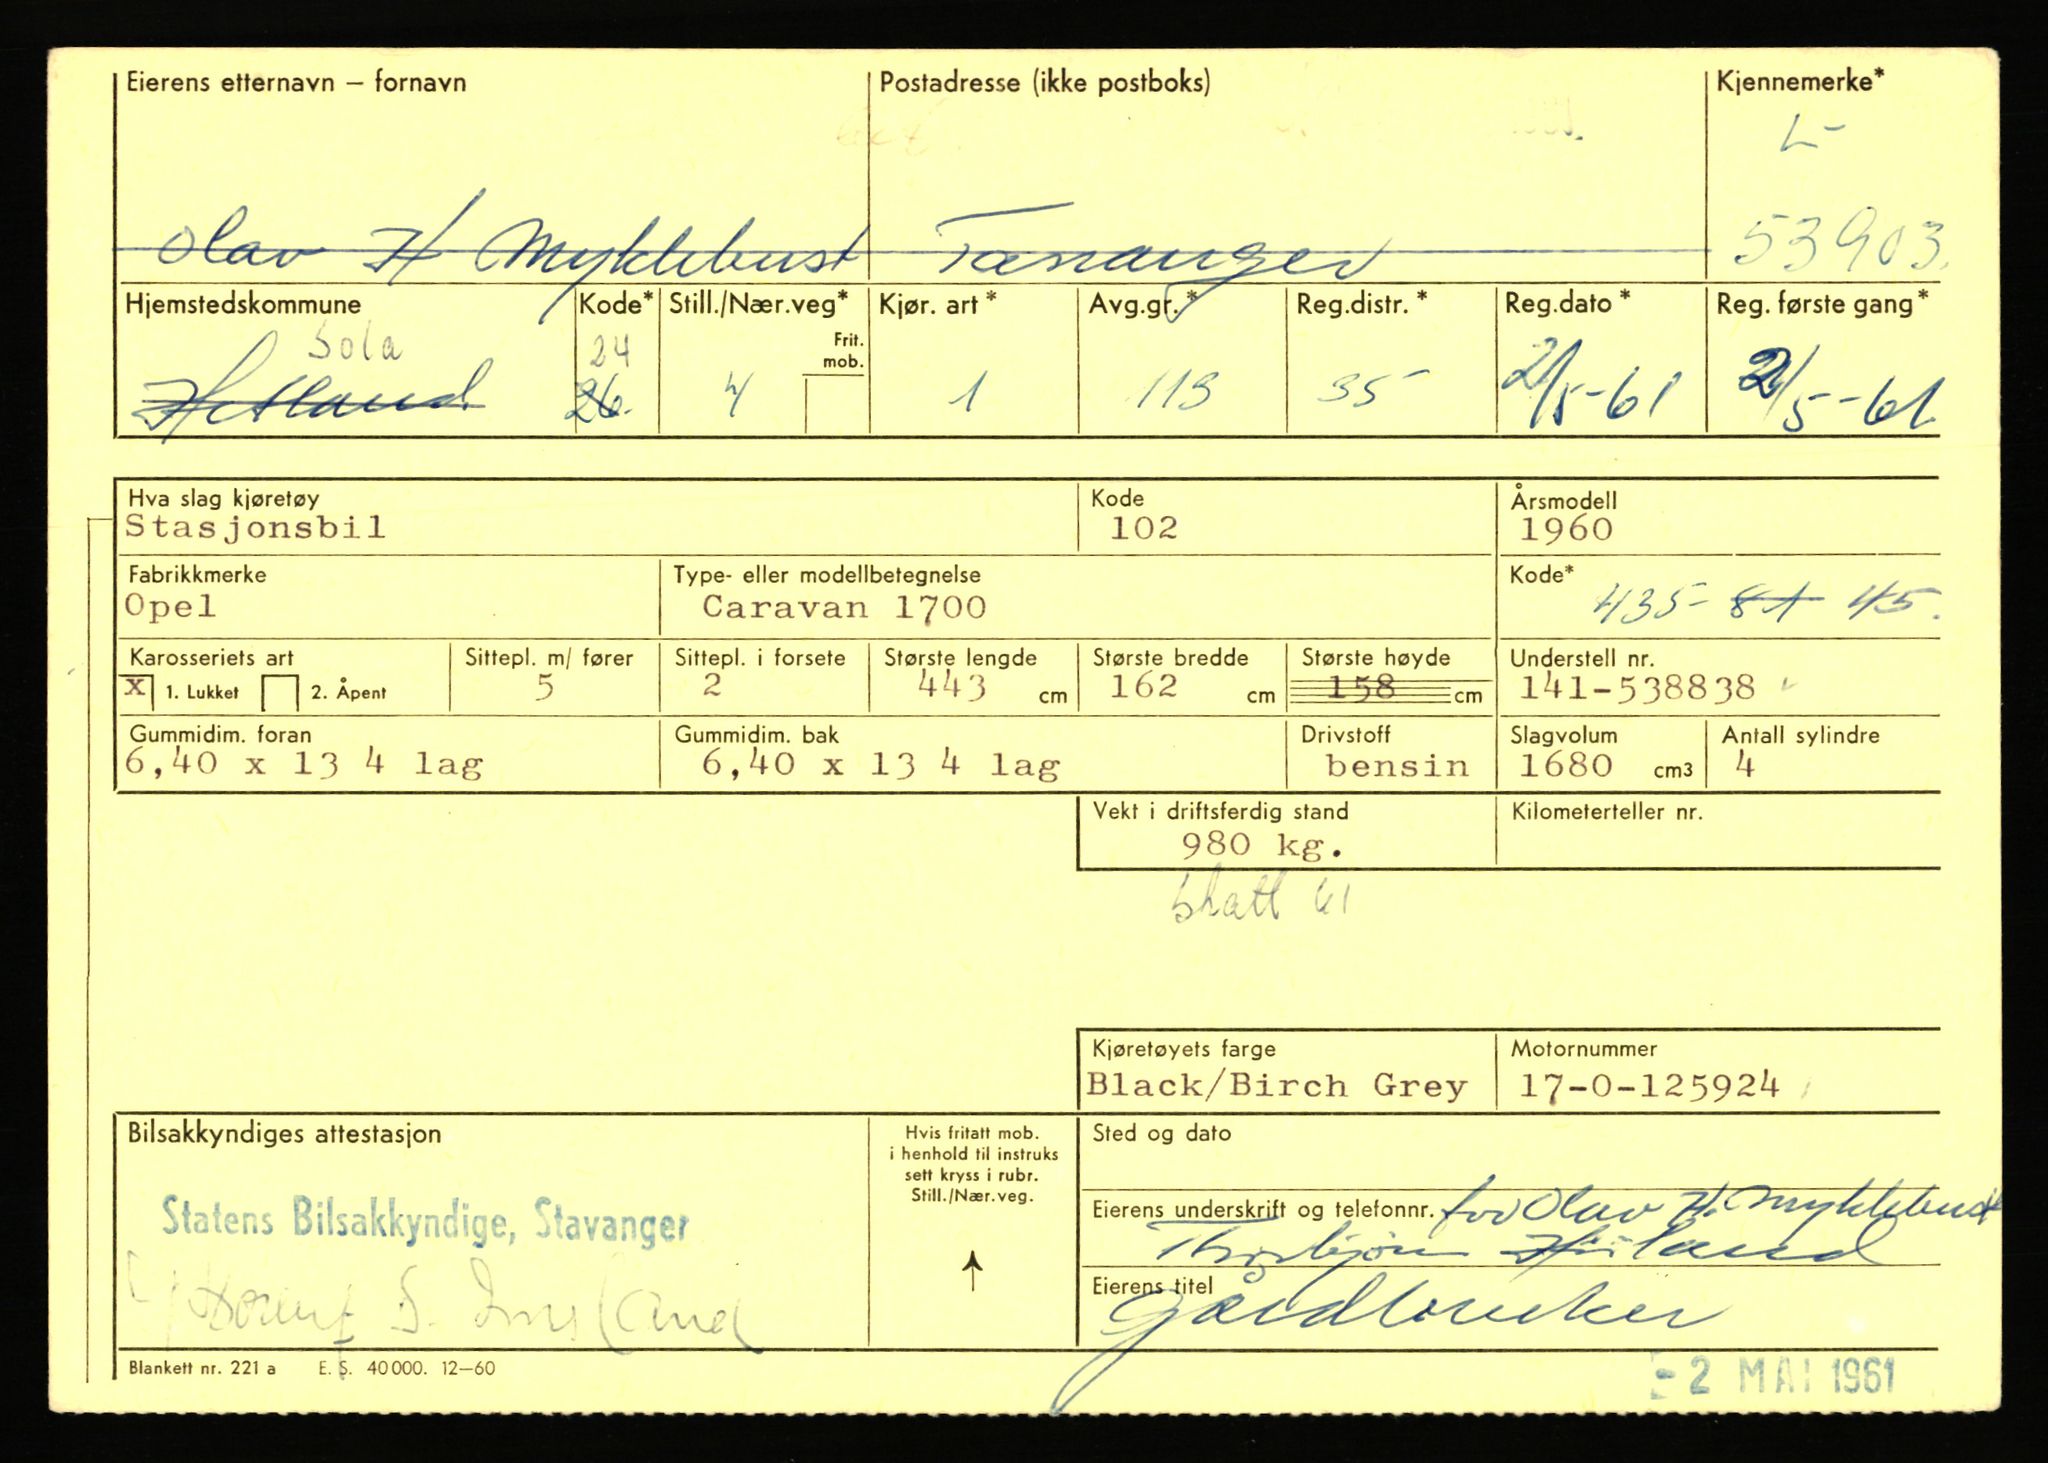 Eierens etternavn – fornavn Postadresse (ikke postboks) Kjennemerke*
L-
Olav H Myklebust Tananger 53903.
Hjemstedskommune Kode* Still./Nær.veg* Kjør. art* Avg.gr.* Reg.distr.* Reg.dato* Reg. første gang*
Sola 24 Frit. mob.
Hetland 26. 4 1 113 35 2/5-61 2/5-61.
Hva slag kjøretøy Kode Årsmodell
Stasjonsbil 102 1960
Fabrikkmerke Type- eller modellbetegnelse Kode*
Opel Caravan 1700 435- 81 45.
Karosseriets art Sittepl. m/ fører Sittepl. i forsete Største lengde Største bredde Største høyde Understell nr.
x 1. Lukket 2. Åpent 5 2 443 cm 162 cm 158 cm 141-538838
Gummidim. foran Gummidim. bak Drivstoff Slagvolum Antall sylindre
6,40 x 13 4 lag 6,40 x 13 4 lag bensin 1680 cm3 4
Vekt i driftsferdig stand Kilometerteller nr.
980 kg.
skatt 61
Kjøretøyets farge Motornummer
Black/Birch Grey 17-0-125924
Bilsakkyndiges attestasjon Hvis fritatt mob. Sted og dato
i henhold til instruks
sett kryss i rubr.
Still./Nær.veg.
Statens Bilsakkyndige, Stavanger Eierens underskrift og telefonnr. for Olav H. Myklebust
Thorbjørn
Eierens titel
Gårdbruker
Blankett nr. 221 a E. S. 40000. 12–60
- 2 MAI 1961